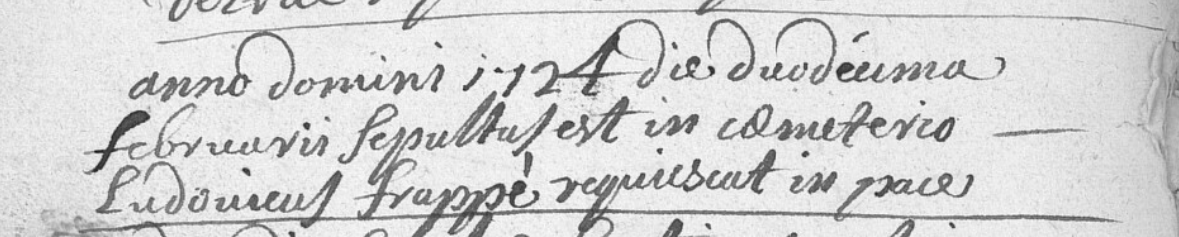 anno domini 1724 die duodecima
februarii sepultus est in cœmeterio
Ludovicus frappè requiescat in pace